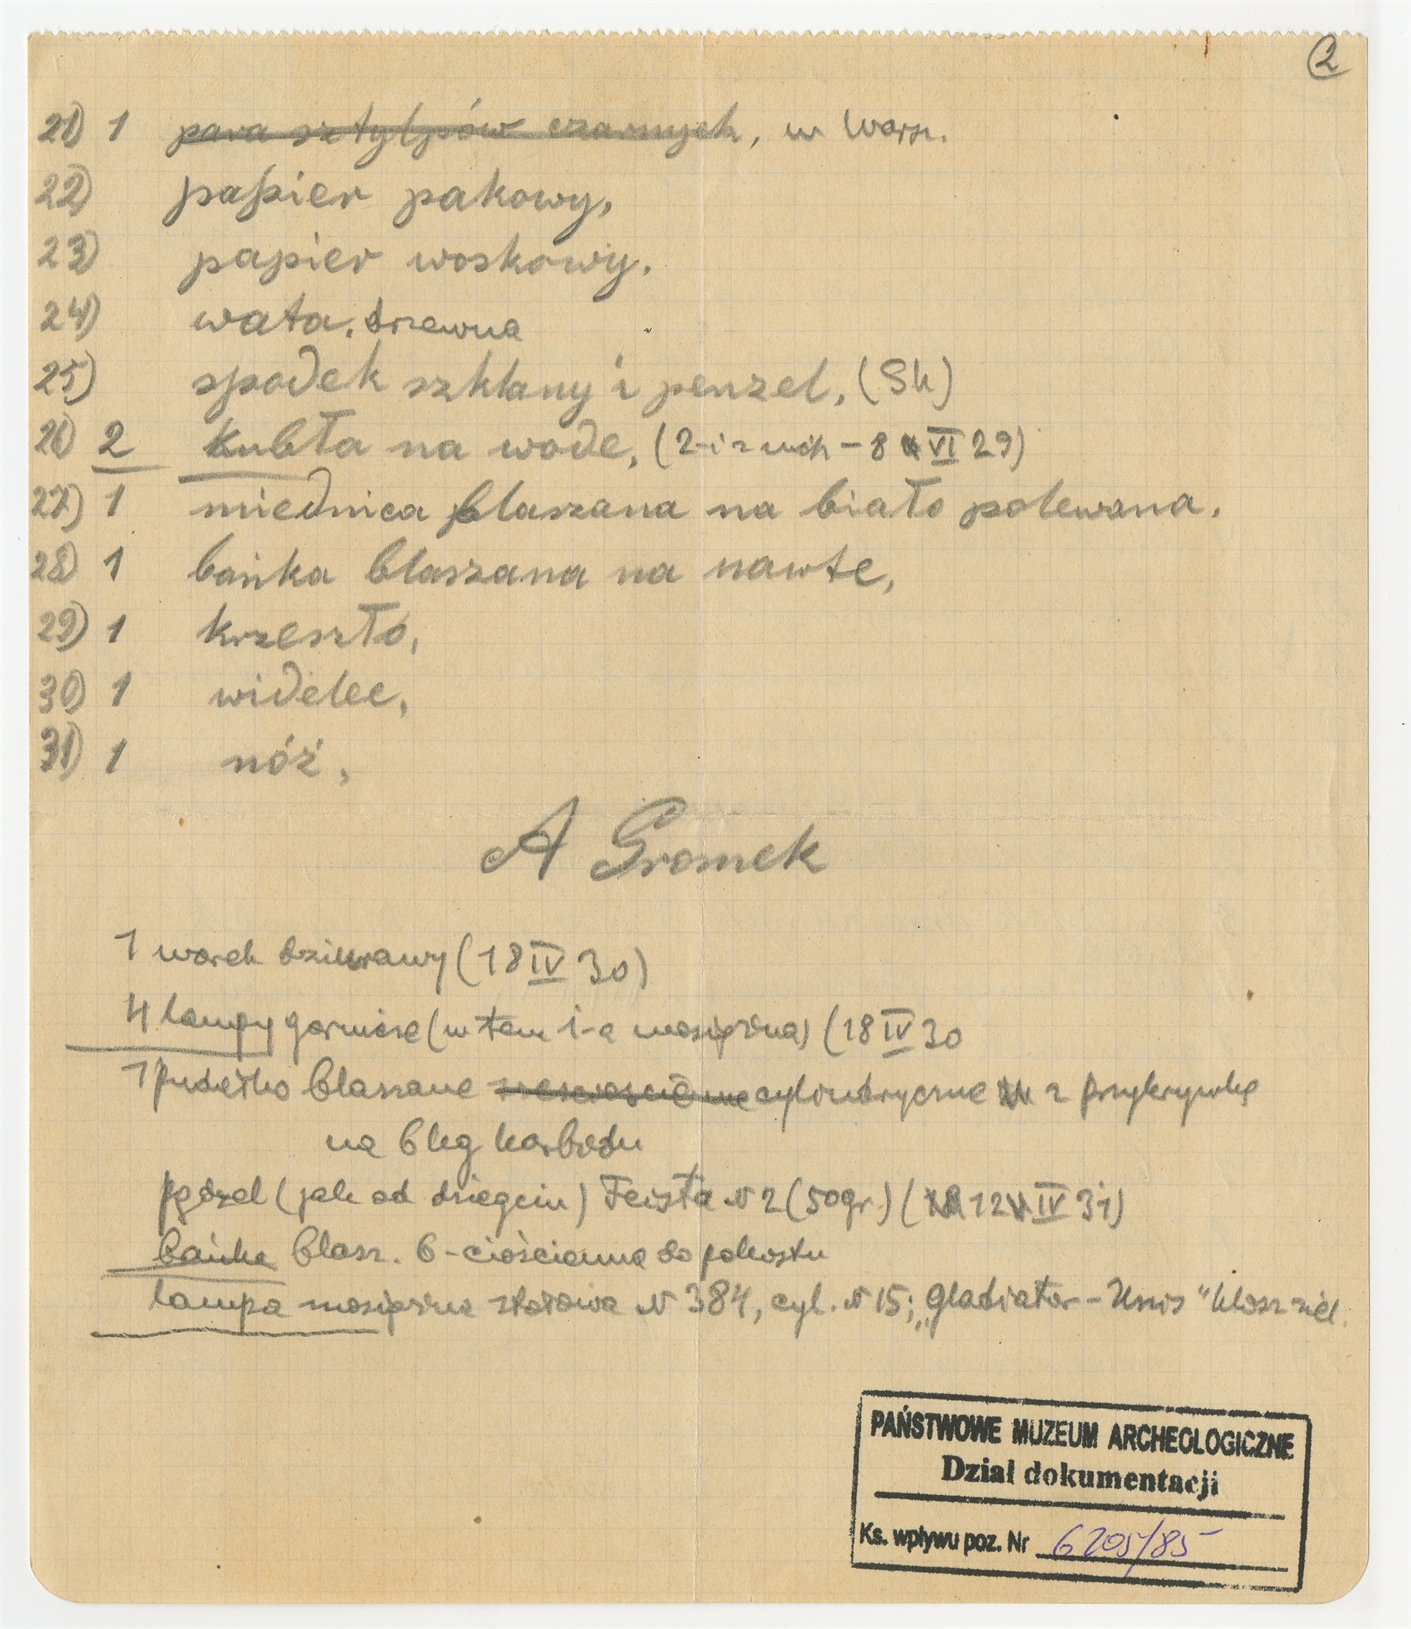 2
21) 1 para sztylpów czarnych, w Warsz.
22) papier pakowy,
23) papier woskowy.
24) wata, drzewna
25) spodek szklany i penzel, (Sk)
26) 2 kubła na wode, (2-i z uch - 8 VI 29)
27) 1 miednica blaszana na biało polewana,
28) 1 bańka blaszana na nawte,
29) 1 krzesztó,
30) 1 widelec,
31) 1 nóż,
A Gromek
1 worek dziurawy (18 IV 30)
4 lampy górnicze (w tem 1-a mosiężna) (18 IV 30
1 pudełko blaszane cylindryczne z przykrywką
na 6 kg karbidu
pędzel (jak od dziegciu) Feista N 2 (50gr) (12 IV 31)
bańka blasz. 6-ciościenna do pokostu
lampa mosiężna stołowa N 384, cyl. N 15; „Gladiator - Unis" klosz ziel.
PAŃSTWOWE MUZEUM ARCHEOLOGICZNE
Dział dokumentacji
Ks. wpływu poz. Nr 6205/85